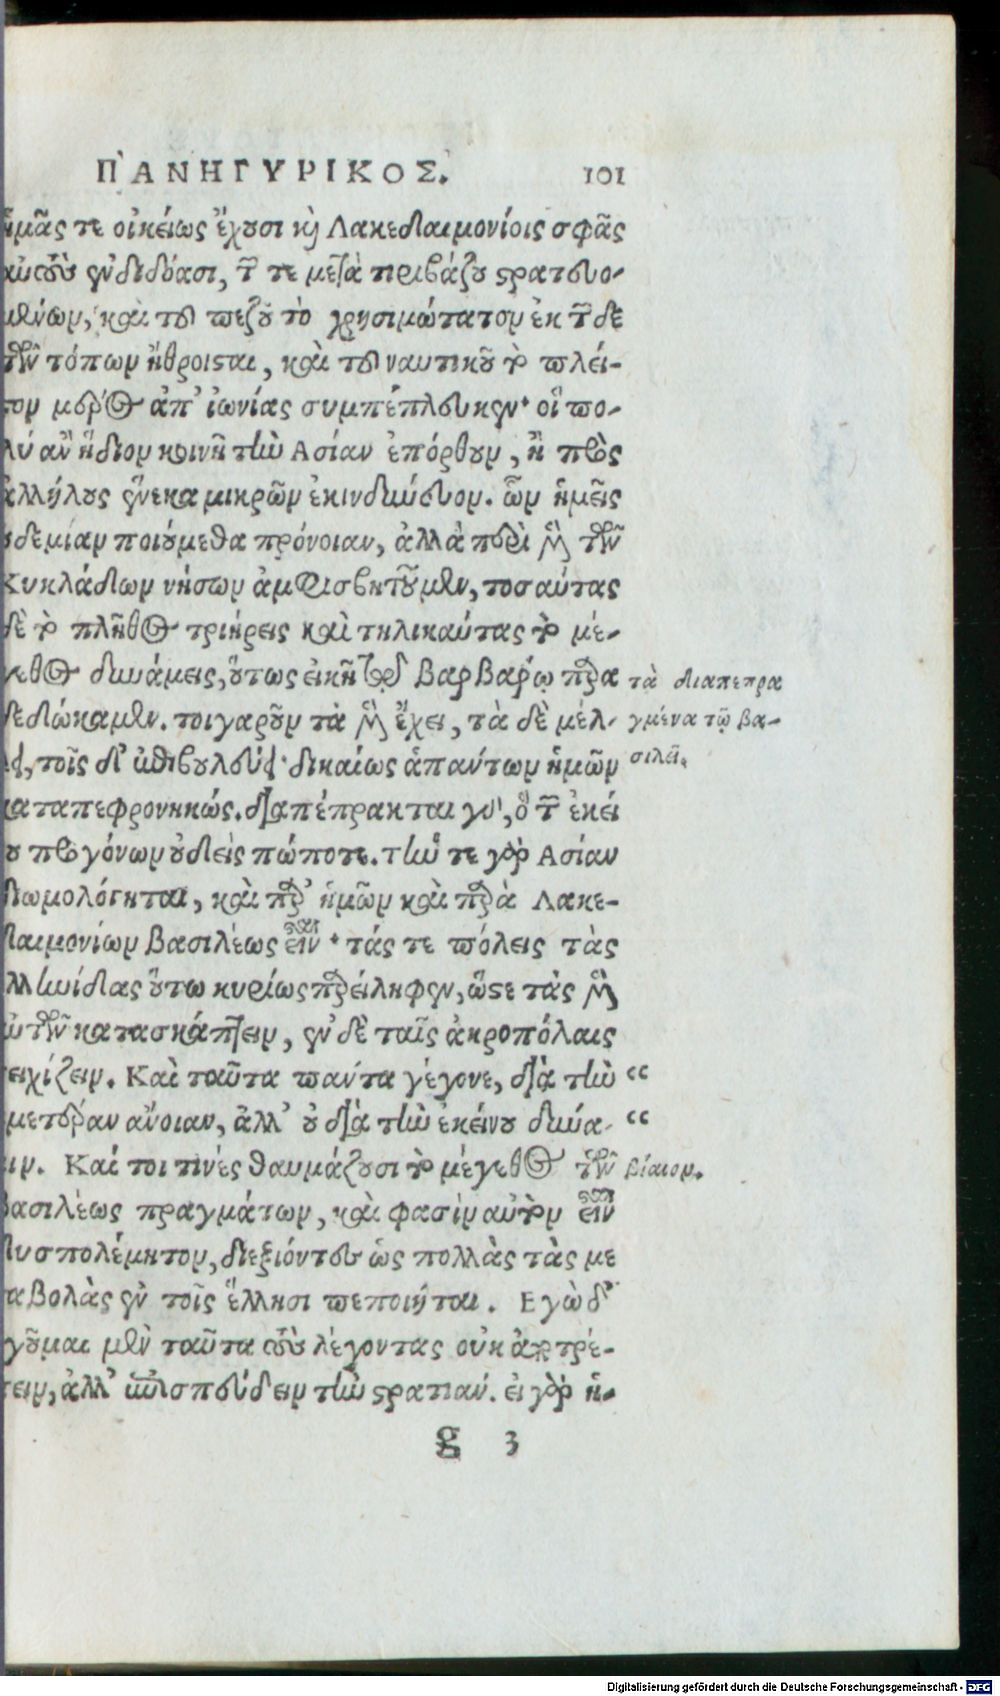 ΠΑΝΗΓΥΡΙΚΟΣ. 101
ἡμᾶς τε οἰκείως ἔχουσι καὶ Λακεδαιμονίοις σφᾶς
αὐτοὺς ἐνδιδόασι, τῶν τε μετὰ τιριβάζου στρατευο-
μένων, καὶ τοῦ πεζοῦ τὸ χρησιμώτατον ἐκ τῶν δε
τῶν τόπων ἤθροισται, καὶ τοῦ ναυτικοῦ τὸ πλεῖ-
τον μέρος ἀπ' ἰωνίας συμπέπλευκεν· οἳ πο-
λύ ἂν ἥδιον κοινῇ τὴν Ασίαν ἐπόρθουν, ἢ πρὸς
ἀλλήλους ἕνεκα μικρῶν ἐκινδύνευον. ὧν ἡμεῖς
οὐδεμίαν ποιούμεθα πρόνοιαν, ἀλλὰ περὶ μὲν τῶν
Κυκλάδων νήσων ἀμφισβητοῦμεν, τοσαύτας
δὲ τὸ πλῆθος τριήρεις καὶ τηλικαύτας τὸ μέ-
γεθος δυνάμεις, οὕτως εἰκῆ τῷ βαρβάρῳ παρα
δεδώκαμεν. τοιγαροῦν τὰ μὲν ἔχει, τὰ δὲ μέλ-
λει, τοῖς δ' ἐπιβουλεύει· δικαίως ἁπάντων ἡμῶν
καταπεφρονηκώς. διαπέπρακται γὰρ, ὃ τῶν ἐκεί
ου προγόνων οὐδεὶς πώποτε. τήν τε γὰρ Ασίαν
διωμολόγηται, καὶ παρ' ἡμῶν καὶ παρὰ Λακε-
δαιμονίων βασιλέως εἶναι· τάς τε πόλεις τὰς
ἑλληνίδας οὕτω κυρίως παρείληφεν, ὥστε τὰς μὲν
αὐτῶν κατασκάπτειν, ἐν δὲ ταῖς ἀκροπόλαις
τειχίζειν. Καὶ ταῦτα πάντα γέγονε, διὰ τὴν “
ἡμετέραν ἄνοιαν, ἀλλ' οὐ διὰ τὴν ἐκείνου δύνα- “
μιν. Καί τοι τινὲς θαυμάζουσι τὸ μέγεθος τῶν
βασιλέως πραγμάτων, καὶ φασὶν αὐτὸν εἶναι
δυσπολέμητον, διεξιόντες ὡς πολλὰς τὰς με
ταβολὰς ἐν τοῖς ἕλλησι πεποιήται. Εγὼ δ'
ἡγοῦμαι μὲν ταῦτα τοὺς λέγοντας οὐκ ἀποτρέ-
πειν, ἀλλ' ἐπισπεύδειν τὴν στρατιάν. εἰ γὰρ ἡ-
g 3
τὰ διαπεπρα
γμένα τῷ βα-
σιλεῖ.
βίαιον.
Digitalisierung gefördert durch die Deutsche Forschungsgemeinschaft - DFG